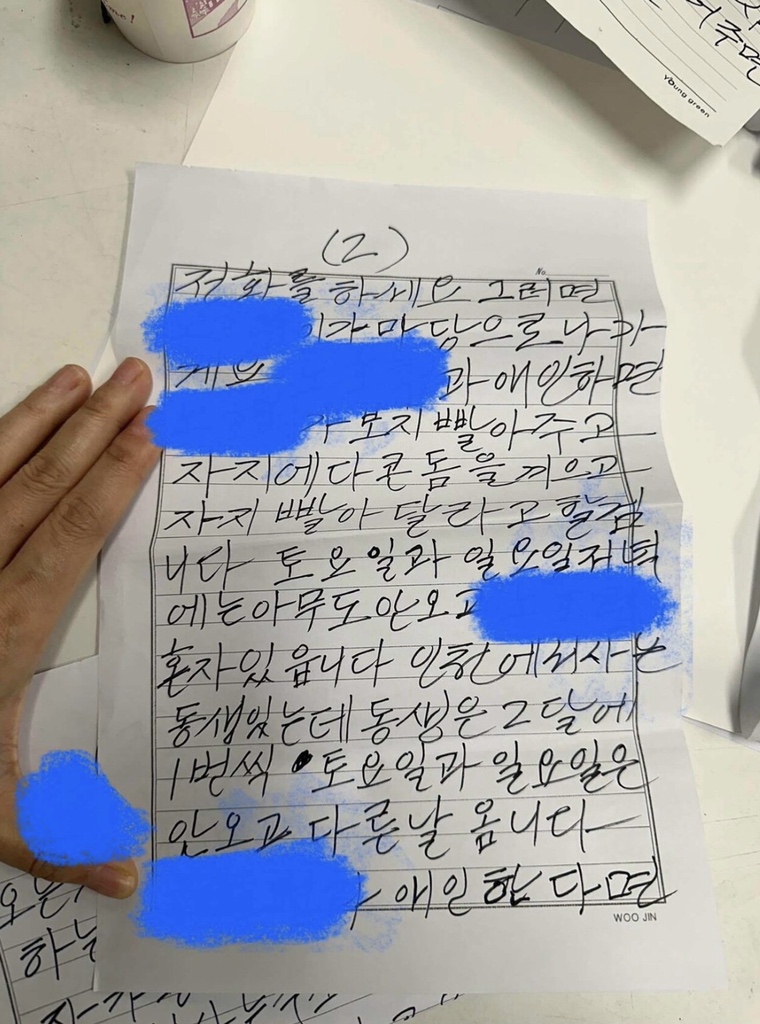 young green
(2)
No.
전화를 하세요 그러면
이가 마당으로 나가
게요 과 애인하면
가 보지 빨아 주고
자지에다 콘돔을 끼우고
자지 빨아 달라고 할겁
니다 토요일과 일요일저녁
에는 아무도 안오고
혼자 있읍니다 인천에서 사는
동생있는데 동생은 2달에
1번씩 토요일과 일요일은
안오고 다른날 옵니다
애인한다면
WOO JIN